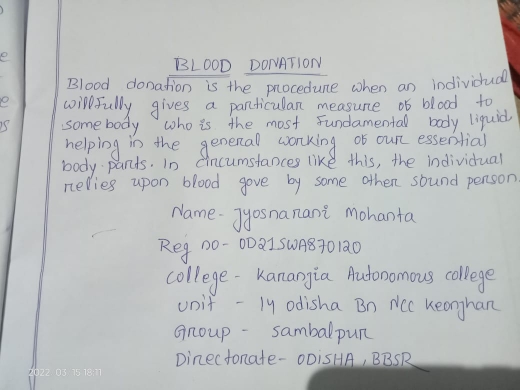 BLOOD DONATION
Blood donation is the procedure when an individual
willfully gives a particular measure of blood to
somebody who is the most fundamental body liquid
helping in the general working of our essential
body parts. In circumstances like this, the individual
relies upon blood gove by some other sound person.
Name - Jyosnarani Mohanta
Reg no - OD21SWA870120
College - Karanjia Autonomous college
Unit - 14 odisha Bn Ncc Keonjhar
Group - Sambalpur
Directorate - ODISHA, BBSR
2022-03-15 18:11